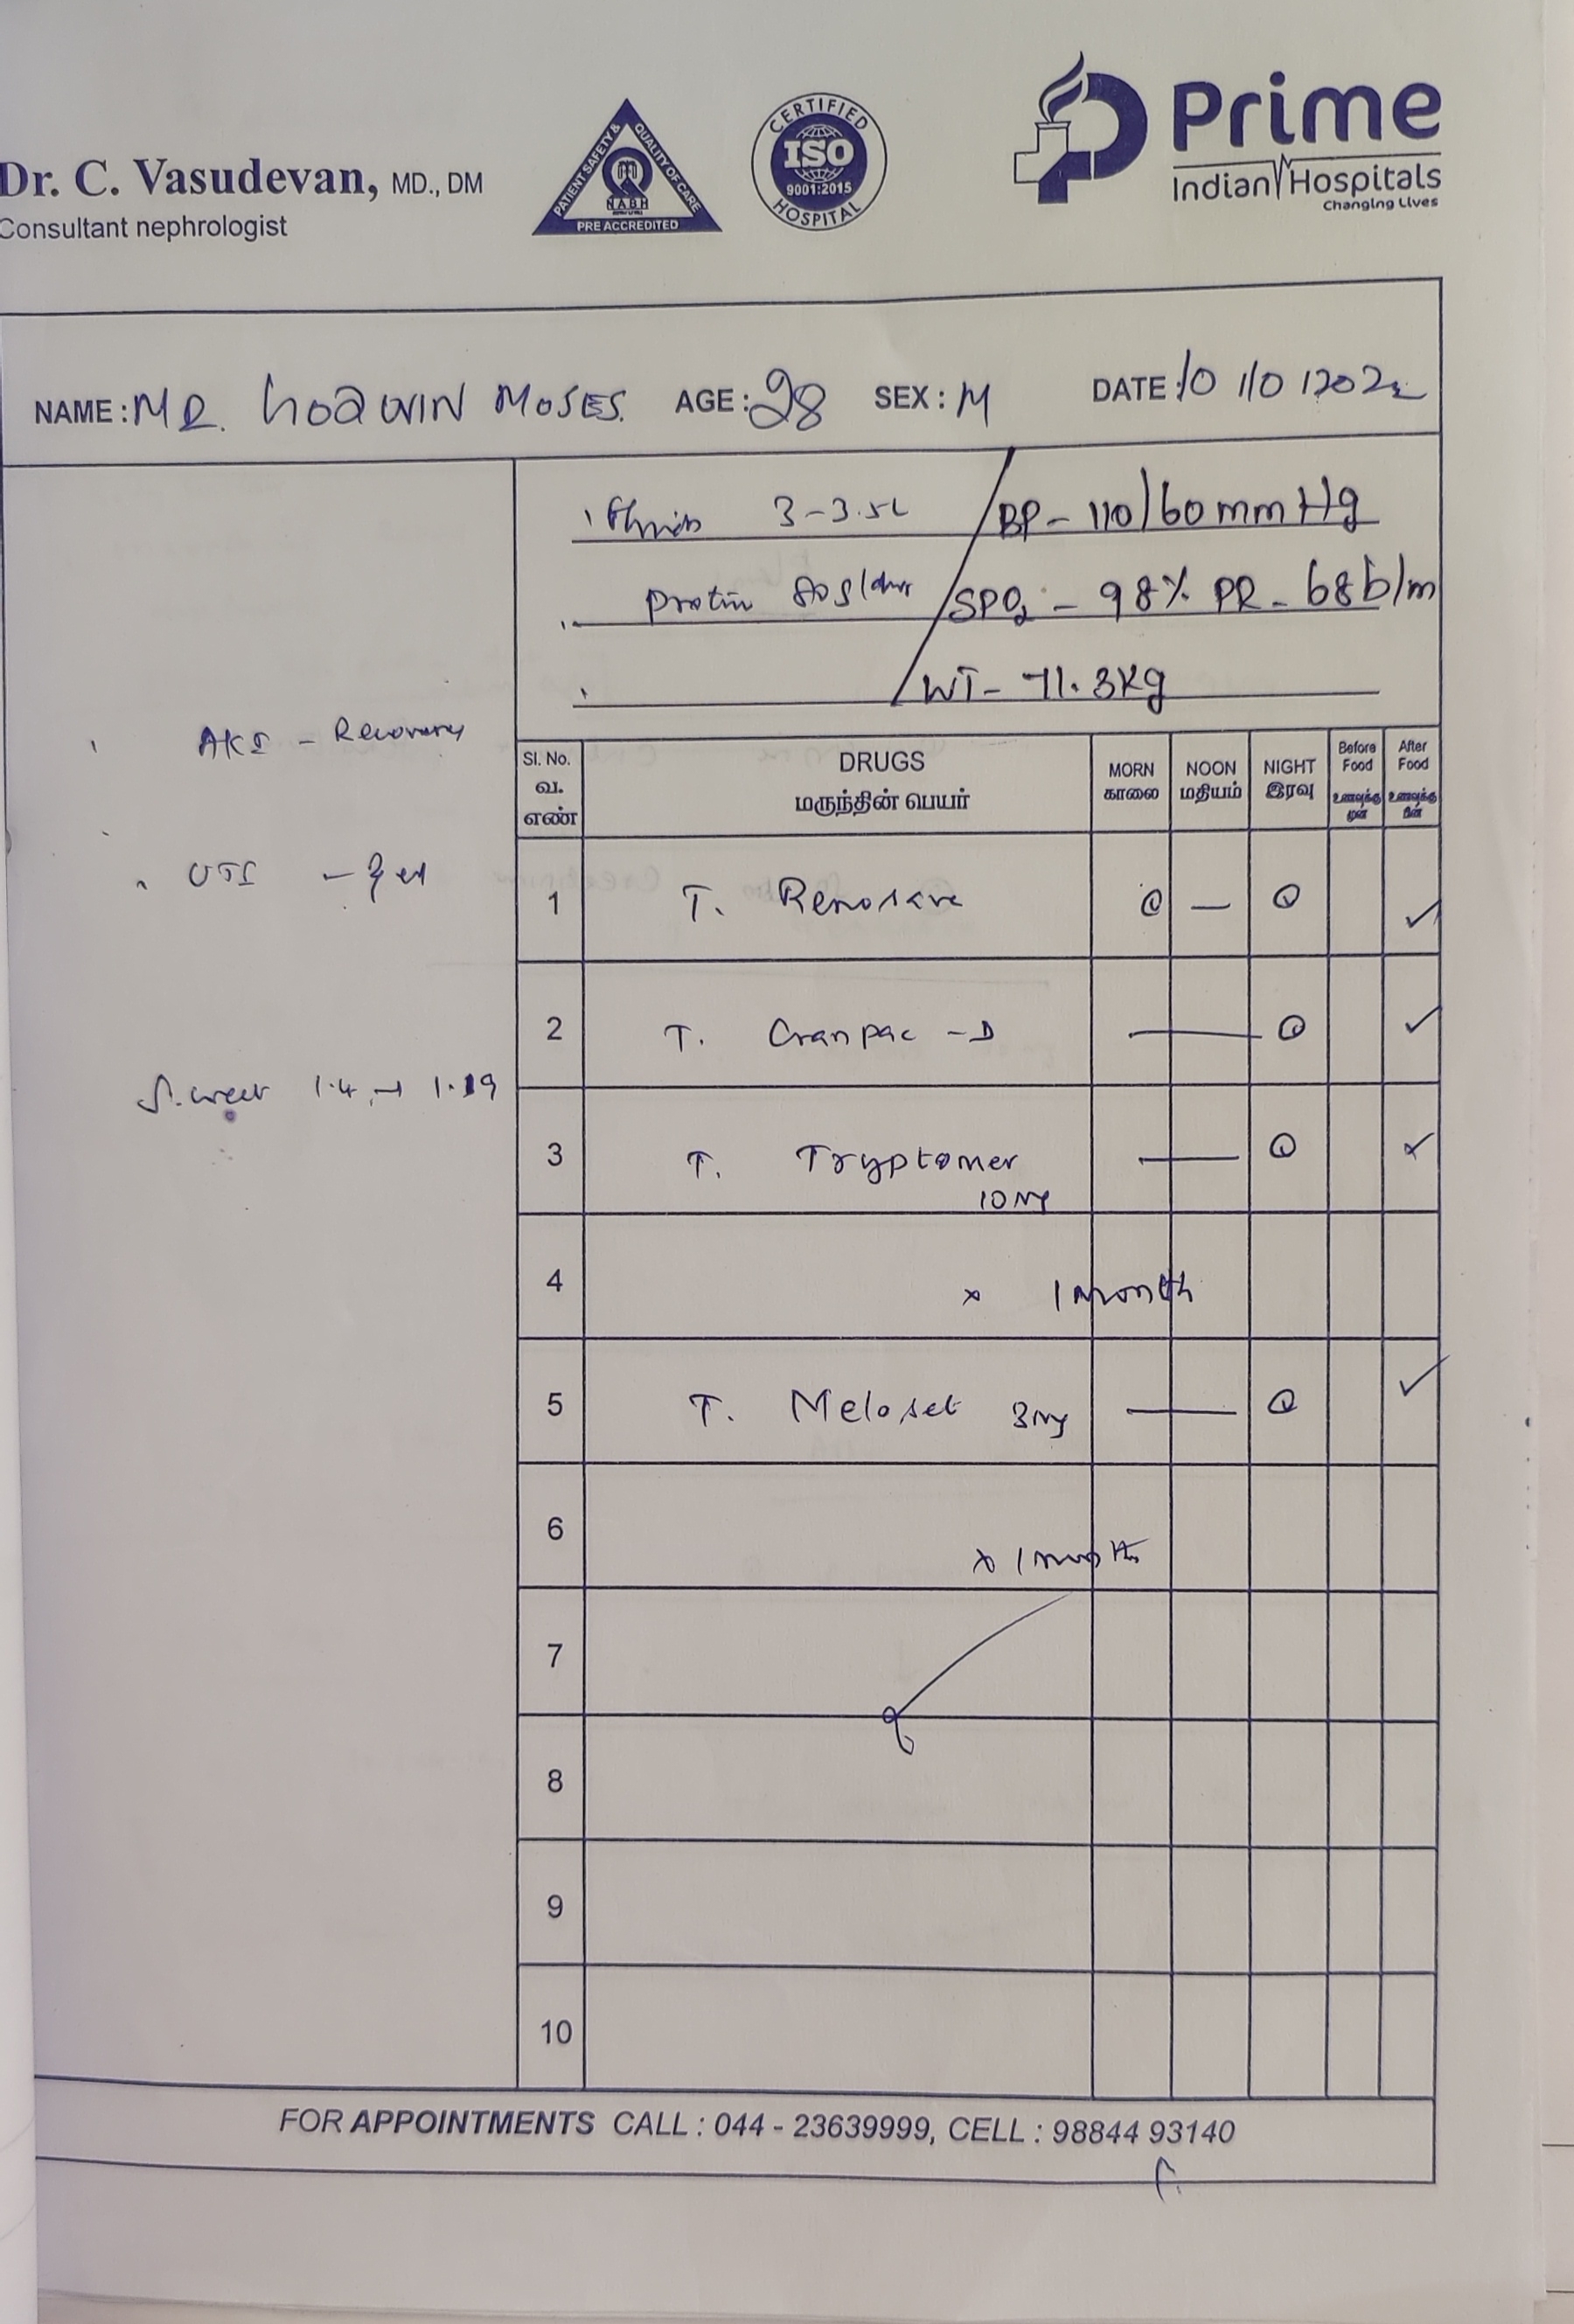 Dr. C. Vasudevan, MD., DM
Consultant nephrologist
PATIENT SAFETY & QUALITY OF CARE
NABH
PRE ACCREDITED
CERTIFIED
ISO
9001:2015
HOSPITAL
Prime
Indian Hospitals
Changing Lives
NAME : MR. GODWIN MOSES. AGE : 28 SEX : M DATE : 10/10/2022
Fluids 3-3.5L BP - 110/60 mmHg
Protin /day SPO2 - 98% PR - 68b/m
WT - 71.3Kg
AKI - Recovery
UTI -
S. creat 1.4 → 1.19
Sl. No. DRUGS MORN NOON NIGHT Before Food After Food
வ. எண் மருந்தின் பெயர் காலை மதியம் இரவு உணவுக்கு முன் உணவுக்கு பின்
1 T. Renosave ① — ① ✓
2 T. Cranpac -D — ① ✓
3 T. Tryptomer — ① ✓
10mg
4 x 1 month
5 T. Meloset 3mg — ① ✓
6 x 1 month
7
8
9
10
FOR APPOINTMENTS CALL : 044 - 23639999, CELL : 98844 93140